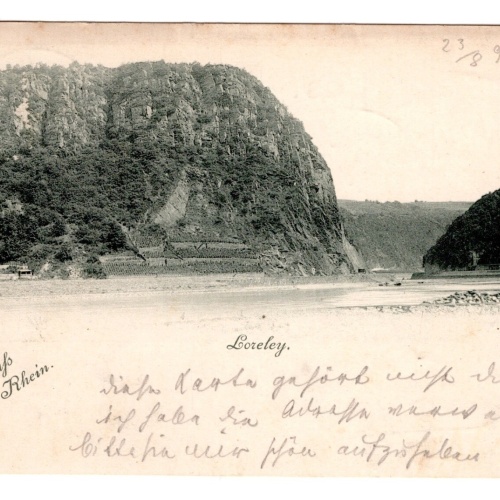 23/8 9
Loreley.
ss
Rhein.
diese Karte gehört nicht di
ich habe die Adresse verw
bitte sie mir schön aufzuheben